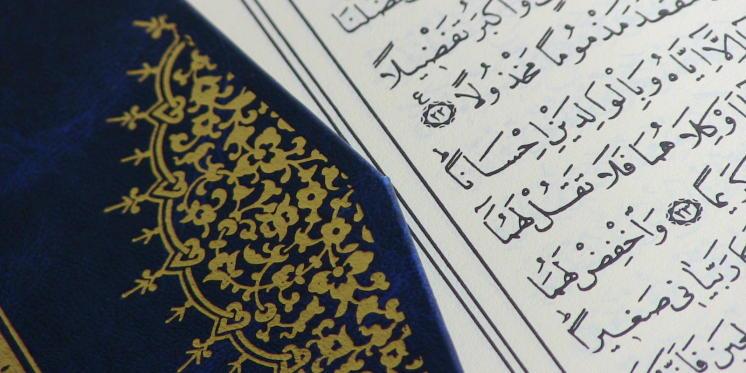 فَضَّلْنَا
وَأَكْبَرُ تَفْضِيلًا
فَتَقْعُدَ مَذْمُومًا مَخْذُولًا ٢٢
إِلَّا إِيَّاهُ وَبِالْوَالِدَيْنِ إِحْسَانًا
أَوْ كِلَاهُمَا فَلَا تَقُلْ لَهُمَا
كَرِيمًا ٢٣ وَاخْفِضْ لَهُمَا
رَبَّيَانِي صَغِيرًا